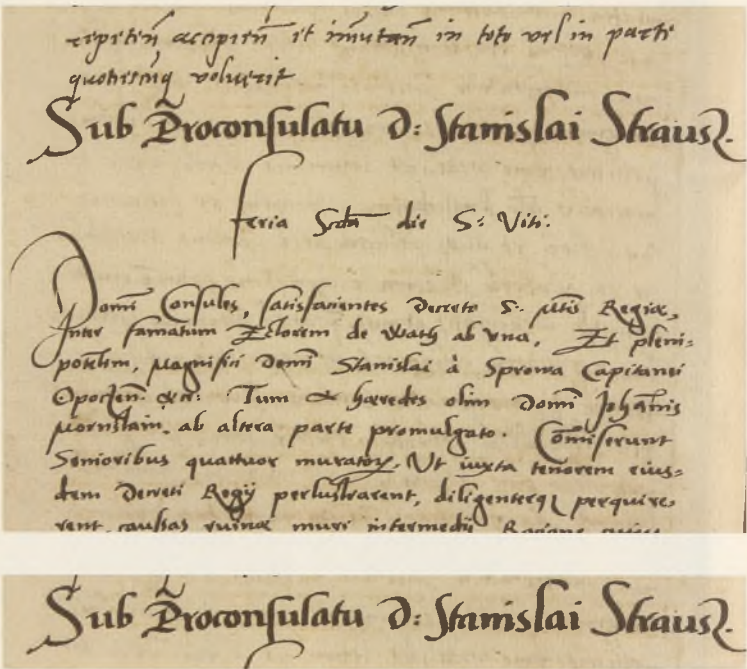 repeteñ accipieñ et imutañ in toto vel in parte
quotiescuq voluerit
Sub Proconsulatu D: Stanislai Strausz.
feria Scda die S: Viti:
Domi Consules, satisfacientes Decreto S: Mtis Regiæ,
Inter famatum Hectorem de Wath ab vna, Et pleni:
potētem, Magnifici Domi Stanislai à Sprowa Capitanei
Opocſen: &c: Tum & hæredes olim Domi Johānis
Mornstain, ab altera parte promulgato. Comiserunt
Senioribus quattuor muratorꝝ. Ut iuxta tenorem eius:
dem Decreti Regij perlustrarent, diligenterq perquire:
rent, caussas ruinæ muri intermedij
Sub Proconsulatu D: Stanislai Strausz.